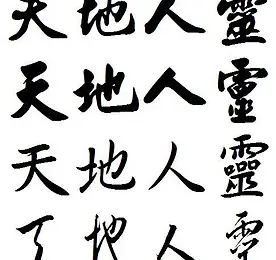 天地人靈
天地人靈
天地人靈
地人